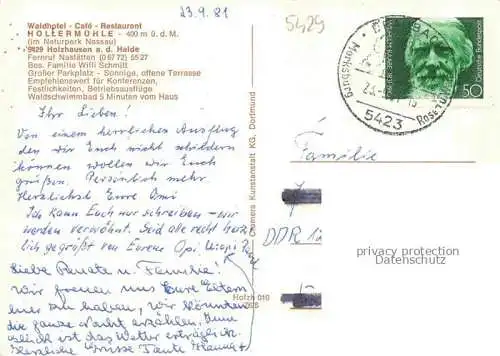 23.9.81
5429
Waldhotel - Café - Restaurant
HOLLERMÜHLE - 400 m ü. d. M.
(im Naturpark Nassau)
5429 Holzhausen a. d. Haide
Fernruf Nastätten (0 67 72) 55 27
Bes. Familie Willi Schmitt
Großer Parkplatz - Sonnige, offene Terrasse
Empfehlenswert für Konferenzen,
Festlichkeiten, Betriebsausflüge
Waldschwimmbad 5 Minuten vom Haus
Ihr Lieben!
Von einem herrlichen Ausflug
den wir Euch nicht schildern
können wollen wir Euch
grüßen. Persönlich mehr
Herzlichst Eure Omi
Ich kann Euch nur schreiben - wir
werden verwöhnt. Seid alle recht herz-
lich gegrüßt von Eurem Opi
Liebe Renate u. Familie!
Wir freuen uns Eure Eltern
hier zu haben, wir könnten
die ganze Nacht erzählen.
ist das Wetter erträglich.
Herzliche Grüsse Tante
Cramers Kunstanstalt KG, Dortmund
Hofzh 010
BRAUBACH
Marksburg
5423
Deutsche Bundespost
50
Familie
DDR
privacy protection
Datenschutz